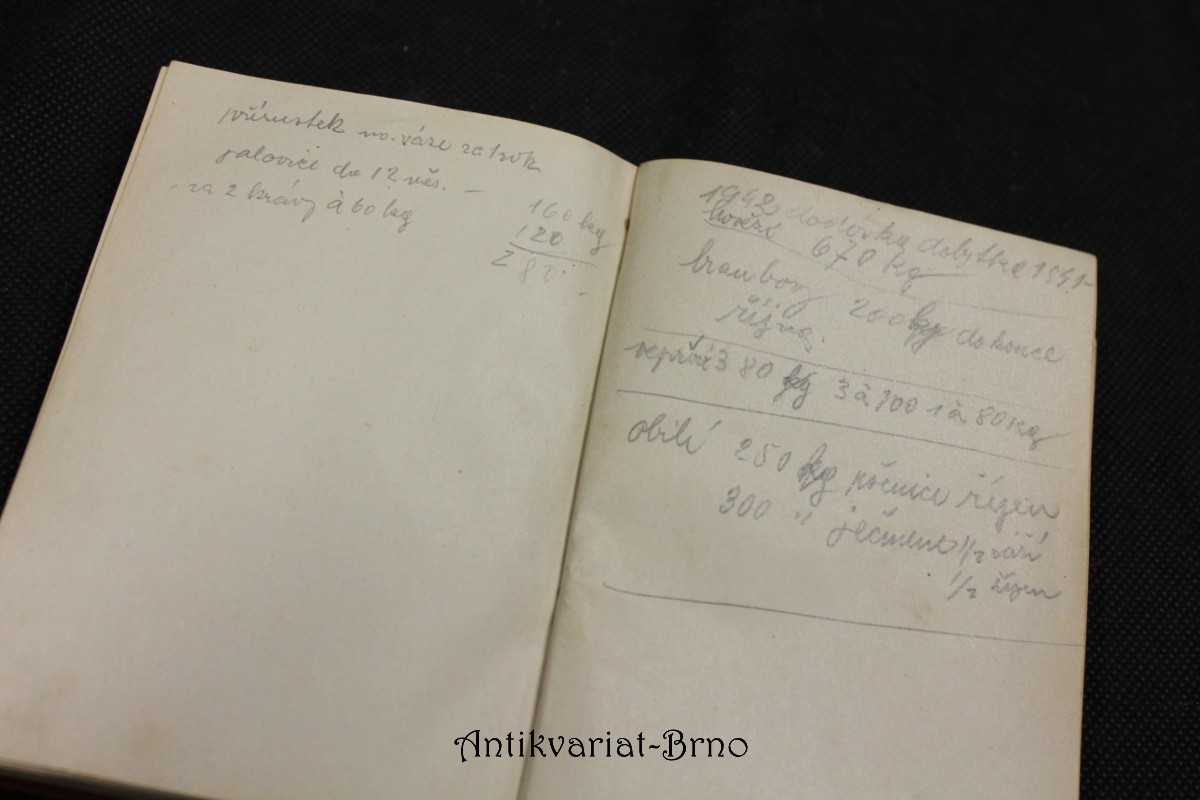 přírustek na váze za 1 rok
jalovici do 12 měs. –
za 2 krávy à 60 kg
160 kg
120
280
1942 dodávka dobytka 1941
hovězí 670 kg
brambory 200 kg do konce
října.
vepřové 380 kg 3 à 100 1 à 80 kg
obilí 250 kg pšenice říjen
300 " ječmene 1/2 září
1/2 říjen
Antikvariat-Brno